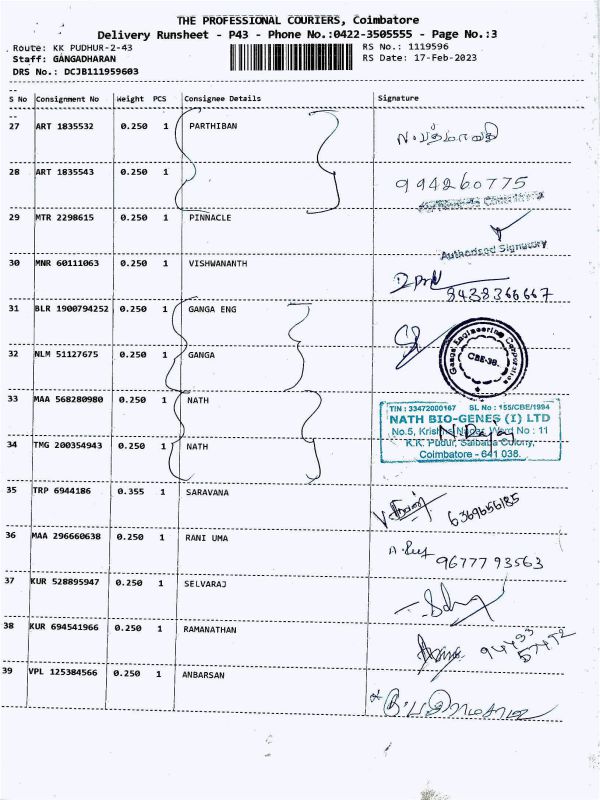 THE PROFESSIONAL COURIERS, Coimbatore
Delivery Runsheet - P43 - Phone No.:0422-3505555 - Page No.:3
Route: KK PUDHUR-2-43
RS No.: 1119596
Staff: GANGADHARAN
RS Date: 17-Feb-2023
DRS No.: DCJB111959603
S No Consignment No Weight PCS Consignee Details Signature
27 ART 1835532 0.250 1 PARTHIBAN
28 ART 1835543 0.250 1 994260775
29 MTR 2298615 0.250 1 PINNACLE
Authorised Signatory
30 MNR 60111063 0.250 1 VISHWANANTH
8438366667
31 BLR 1900794252 0.250 1 GANGA ENG
Ganga Engineering Corporation
CBE-38.
32 NLM 51127675 0.250 1 GANGA
33 MAA 568280980 0.250 1 NATH
TIN : 33472000167 SL No : 155/CBE/1994
NATH BIO-GENES (I) LTD
No.5, Krishna Nagar, Ward No : 11
K.K. Pudur, Saibaba Colony,
Coimbatore - 641 038.
34 TMG 200354943 0.250 1 NATH
35 TRP 6944186 0.355 1 SARAVANA
6369656185
36 MAA 296660638 0.250 1 RANI UMA
9677793563
37 KUR 528895947 0.250 1 SELVARAJ
38 KUR 694541966 0.250 1 RAMANATHAN
39 VPL 125384566 0.250 1 ANBARSAN